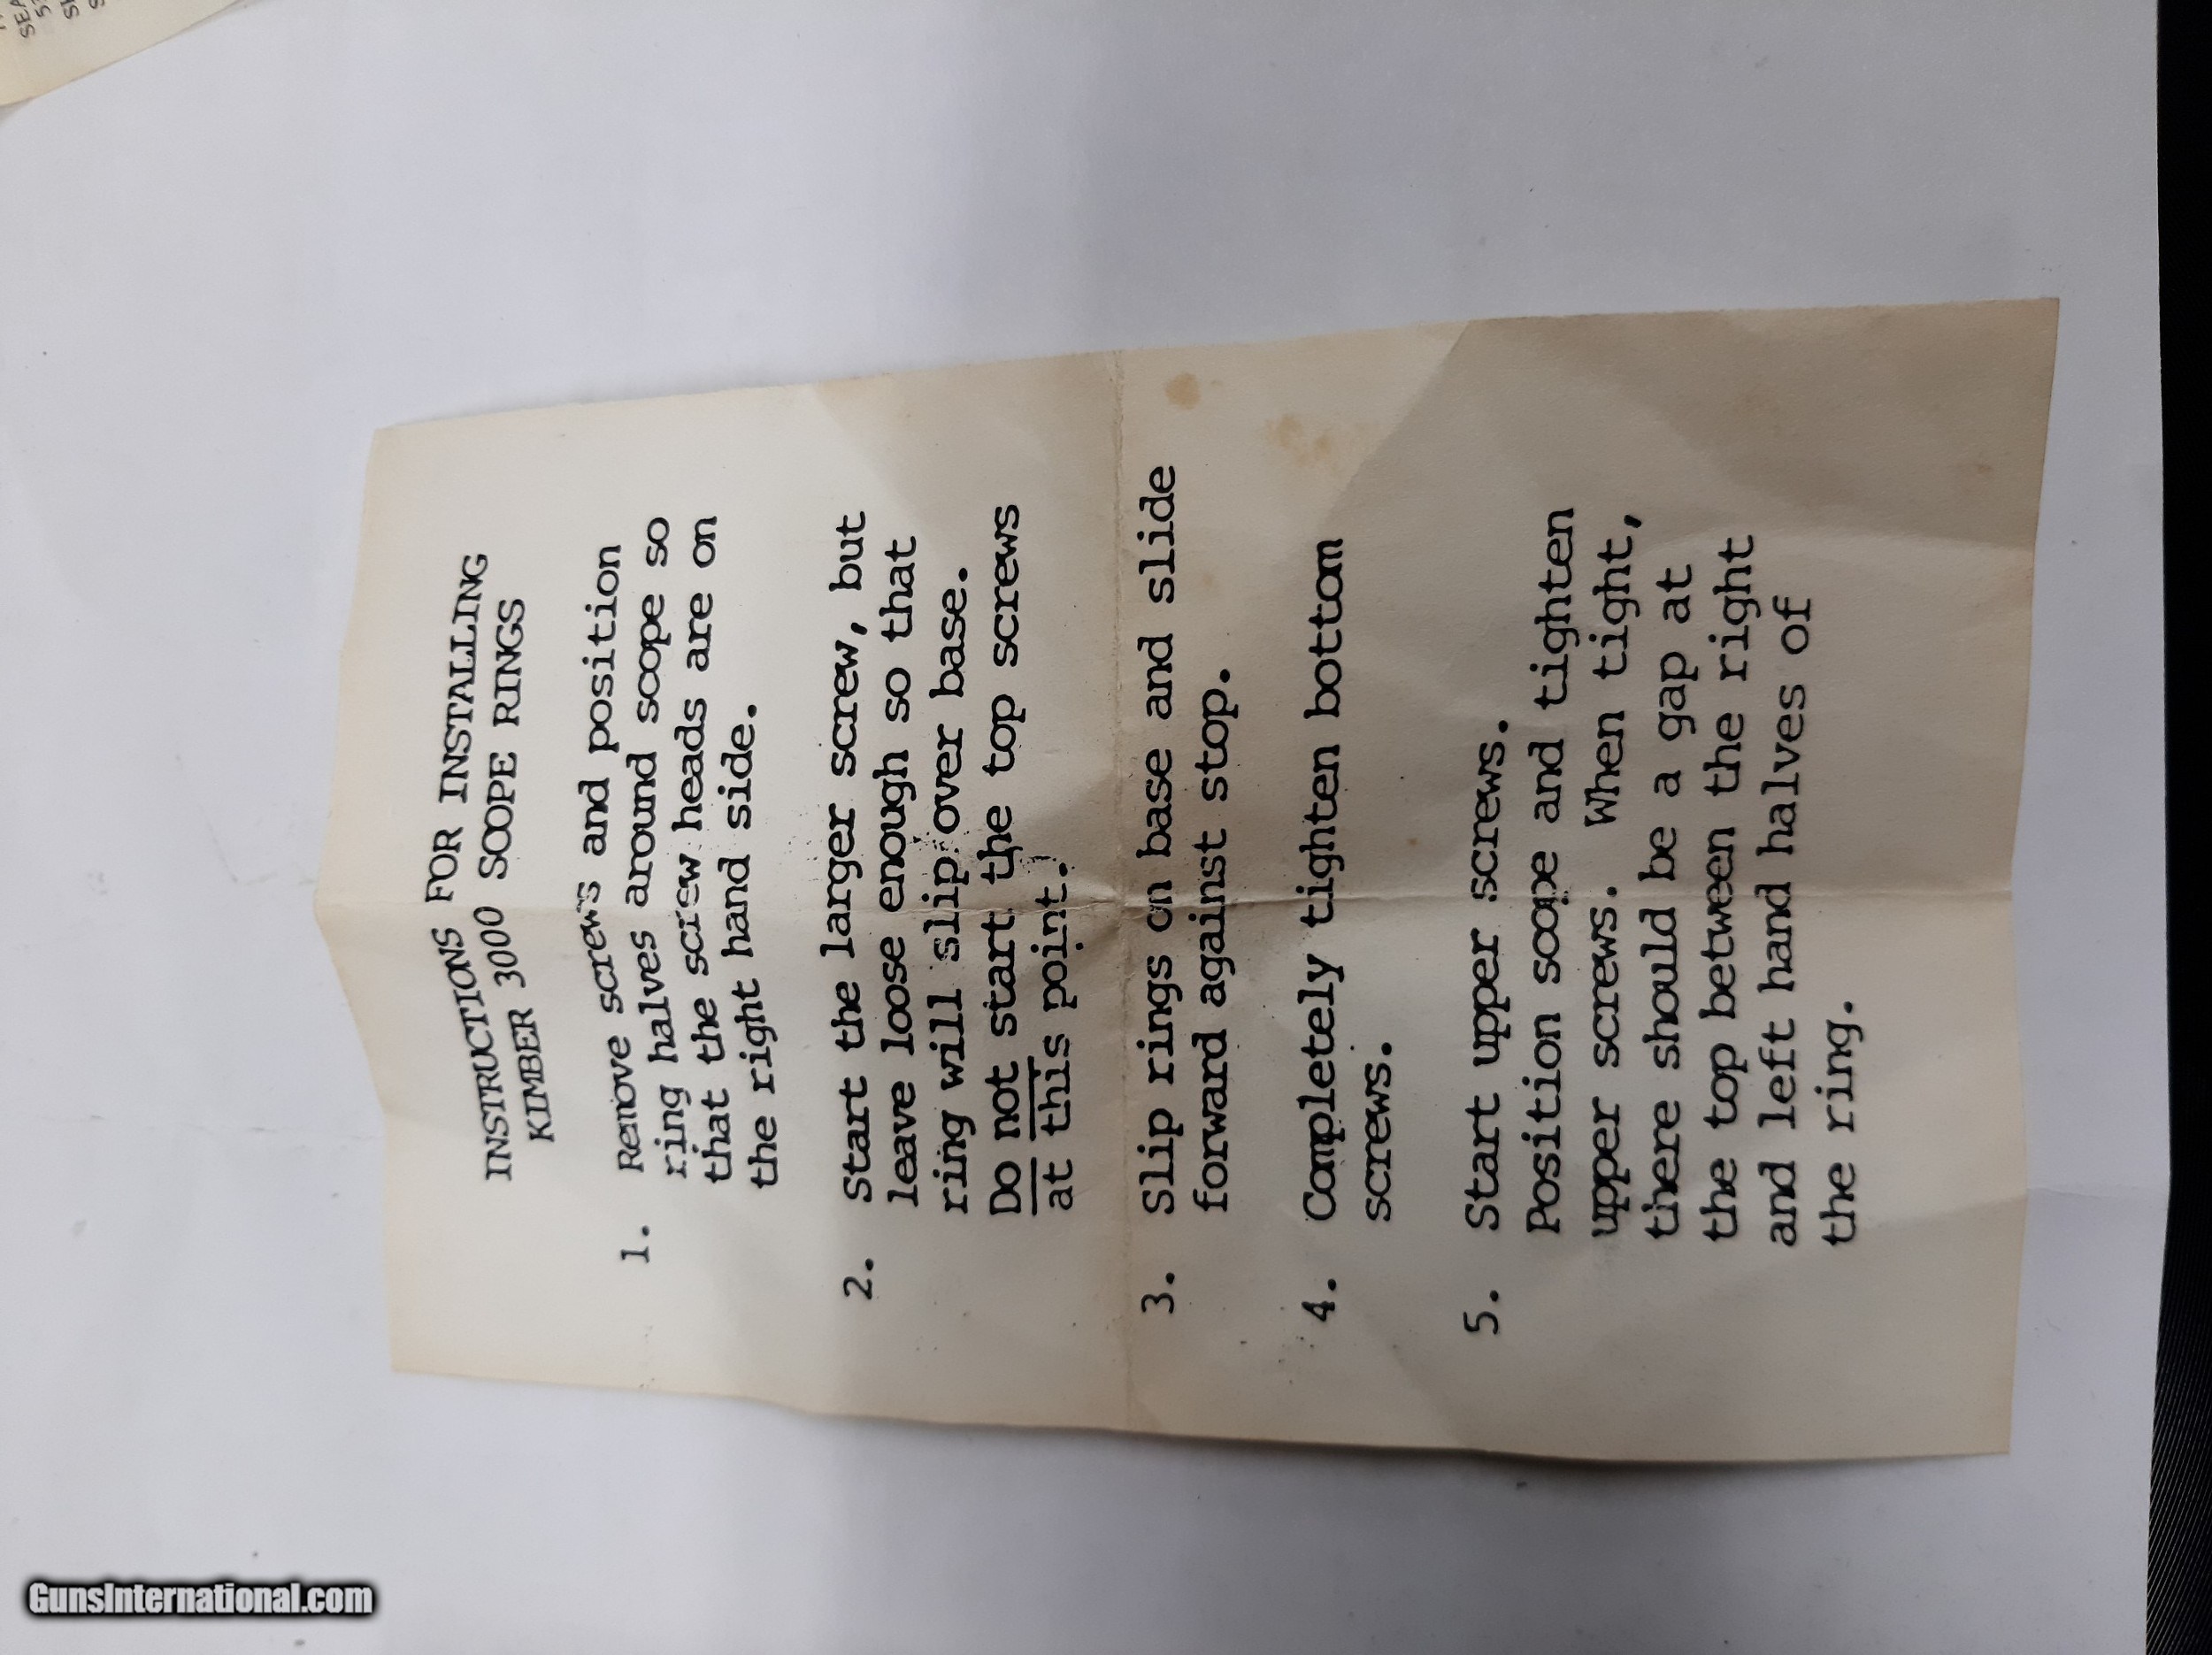 INSTRUCTIONS FOR INSTALLING
KIMBER 3000 SCOPE RINGS
1. Remove screws and position
ring halves around scope so
that the screw heads are on
the right hand side.
2. Start the larger screw, but
leave loose enough so that
ring will slip over base.
Do not start the top screws
at this point.
3. Slip rings on base and slide
forward against stop.
4. Completely tighten bottom
screws.
5. Start upper screws.
Position scope and tighten
upper screws. When tight,
there should be a gap at
the top between the right
and left hand halves of
the ring.
GunsInternational.com